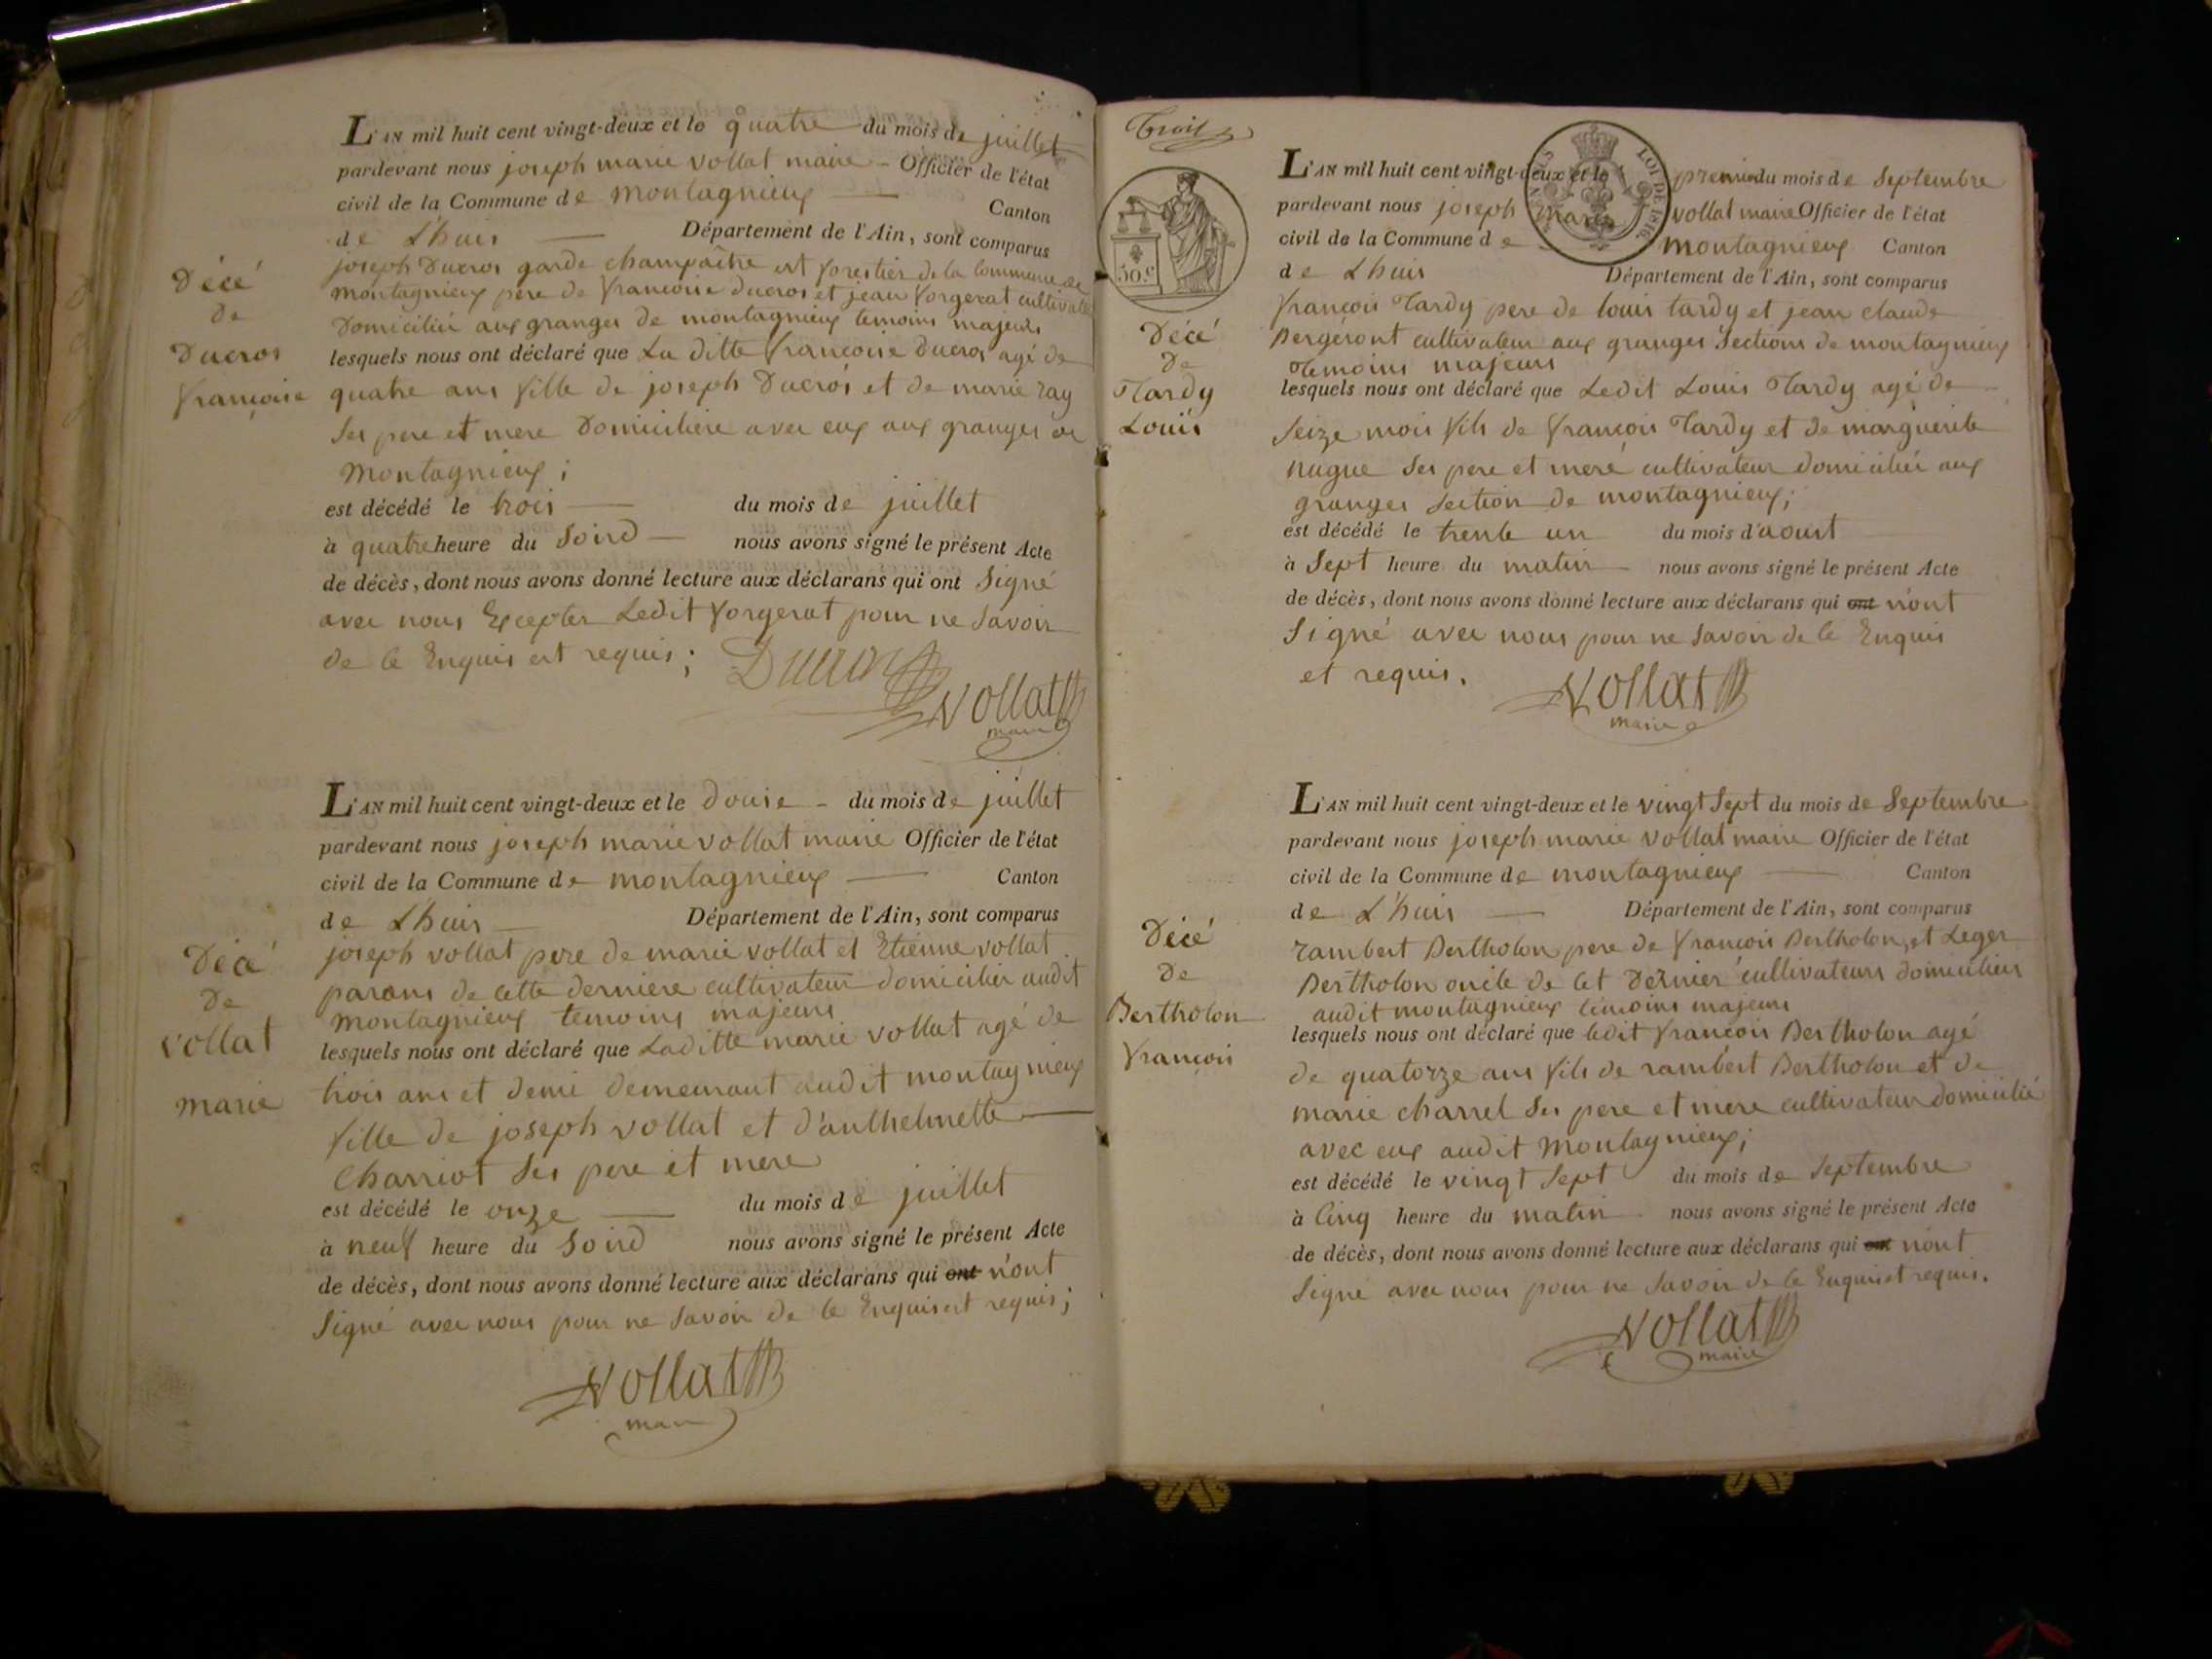 L'AN mil huit cent vingt-deux et le quatre du mois de juillet
pardevant nous joseph marie vollat maire - Officier de l'état
civil de la Commune de montagnieux Canton
de L'huis Département de l'Ain, sont comparus
joseph Ducros garde champaître est forestier de la commune de
montagnieux pere de francoise ducros et jean forgerat cultivateur
Domiciliés aux granges de montagnieux temoins majeurs
lesquels nous ont déclaré que La ditte francoise Ducros agé de
quatre ans fille de joseph Ducros et de marie ray
Ses pere et mere Domiciliere avec eux aux granges de
montagnieux;
est décédé le trois du mois de juillet
à quatre heure du Soird nous avons signé le présent Acte
de décès, dont nous avons donné lecture aux déclarans qui ont Signé
avec nous Excepter Ledit forgerat pour ne Savoir
de le Enquis est requis;
Ducros
Vollat
maire
Décé
de
Ducros
francoise
L'AN mil huit cent vingt-deux et le douse - du mois de juillet
pardevant nous joseph marie vollat maire Officier de l'état
civil de la Commune de montagnieux Canton
de L'huis Département de l'Ain, sont comparus
joseph vollat pere de marie vollat et Etienne vollat
parans de cette derniere cultivateur domicilier audit
montagnieux temoins majeurs
lesquels nous ont déclaré que Laditte marie vollat agé de
trois ans et demi demeurant audit montagnieux
fille de joseph vollat et d'anthelmette
Charriot Ses pere et mere
est décédé le onze du mois de juillet
à neuf heure du Soird nous avons signé le présent Acte
de décès, dont nous avons donné lecture aux déclarans qui ont n'ont
Signé avec nous pour ne Savoir de le Enquis est requis;
Vollat
maire
Décé
De
vollat
marie
Troit
L'AN mil huit cent vingt-deux et le premier du mois de Septembre
pardevant nous joseph marie vollat maire Officier de l'état
civil de la Commune de montagnieux Canton
de Lhuis Département de l'Ain, sont comparus
LOI DE 1816.
50 c.
françois Tardy pere de louis tardy et jean claude
Bergeront cultivateur aux granges Sections de montagnieux
Temoins majeurs
lesquels nous ont déclaré que Ledit Louis Tardy agé de
Seize mois fils de françois Tardy et de marguerite
nugue Ses pere et mere cultivateur domiciliés aux
granges Section de montagnieux;
est décédé le trente un du mois d'aoust
à Sept heure du matin nous avons signé le présent Acte
de décès, dont nous avons donné lecture aux déclarans qui ont n'ont
Signé avec nous pour ne Savoir de le Enquis
et requis.
Vollat
maire
Décé
De
Tardy
Louis
L'AN mil huit cent vingt-deux et le vingt Sept du mois de Septembre
pardevant nous joseph marie vollat maire Officier de l'état
civil de la Commune de montagnieux Canton
de L'huis Département de l'Ain, sont comparus
rambert Bertholon pere de françois Bertholon, et Leger
Bertholon oncle de cet Dernier cultivateurs domiciliers
audit montagnieux témoins majeurs
lesquels nous ont déclaré que ledit françois Bertholon agé
de quatorze ans fils de rambert Bertholon et de
marie charrel Ses pere et mere cultivateur domicilié
avec eux audit montagnieux;
est décédé le vingt Sept du mois de Septembre
à Cinq heure du matin nous avons signé le présent Acte
de décès, dont nous avons donné lecture aux déclarans qui ont n'ont
Signé avec nous pour ne Savoir de le Enquis et requis.
Vollat
maire
Décé
De
Bertholon
françois